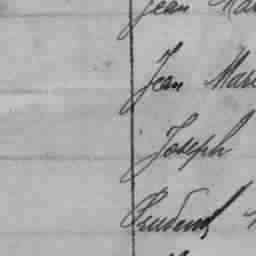 Jean
Jean
Joseph
Prudent